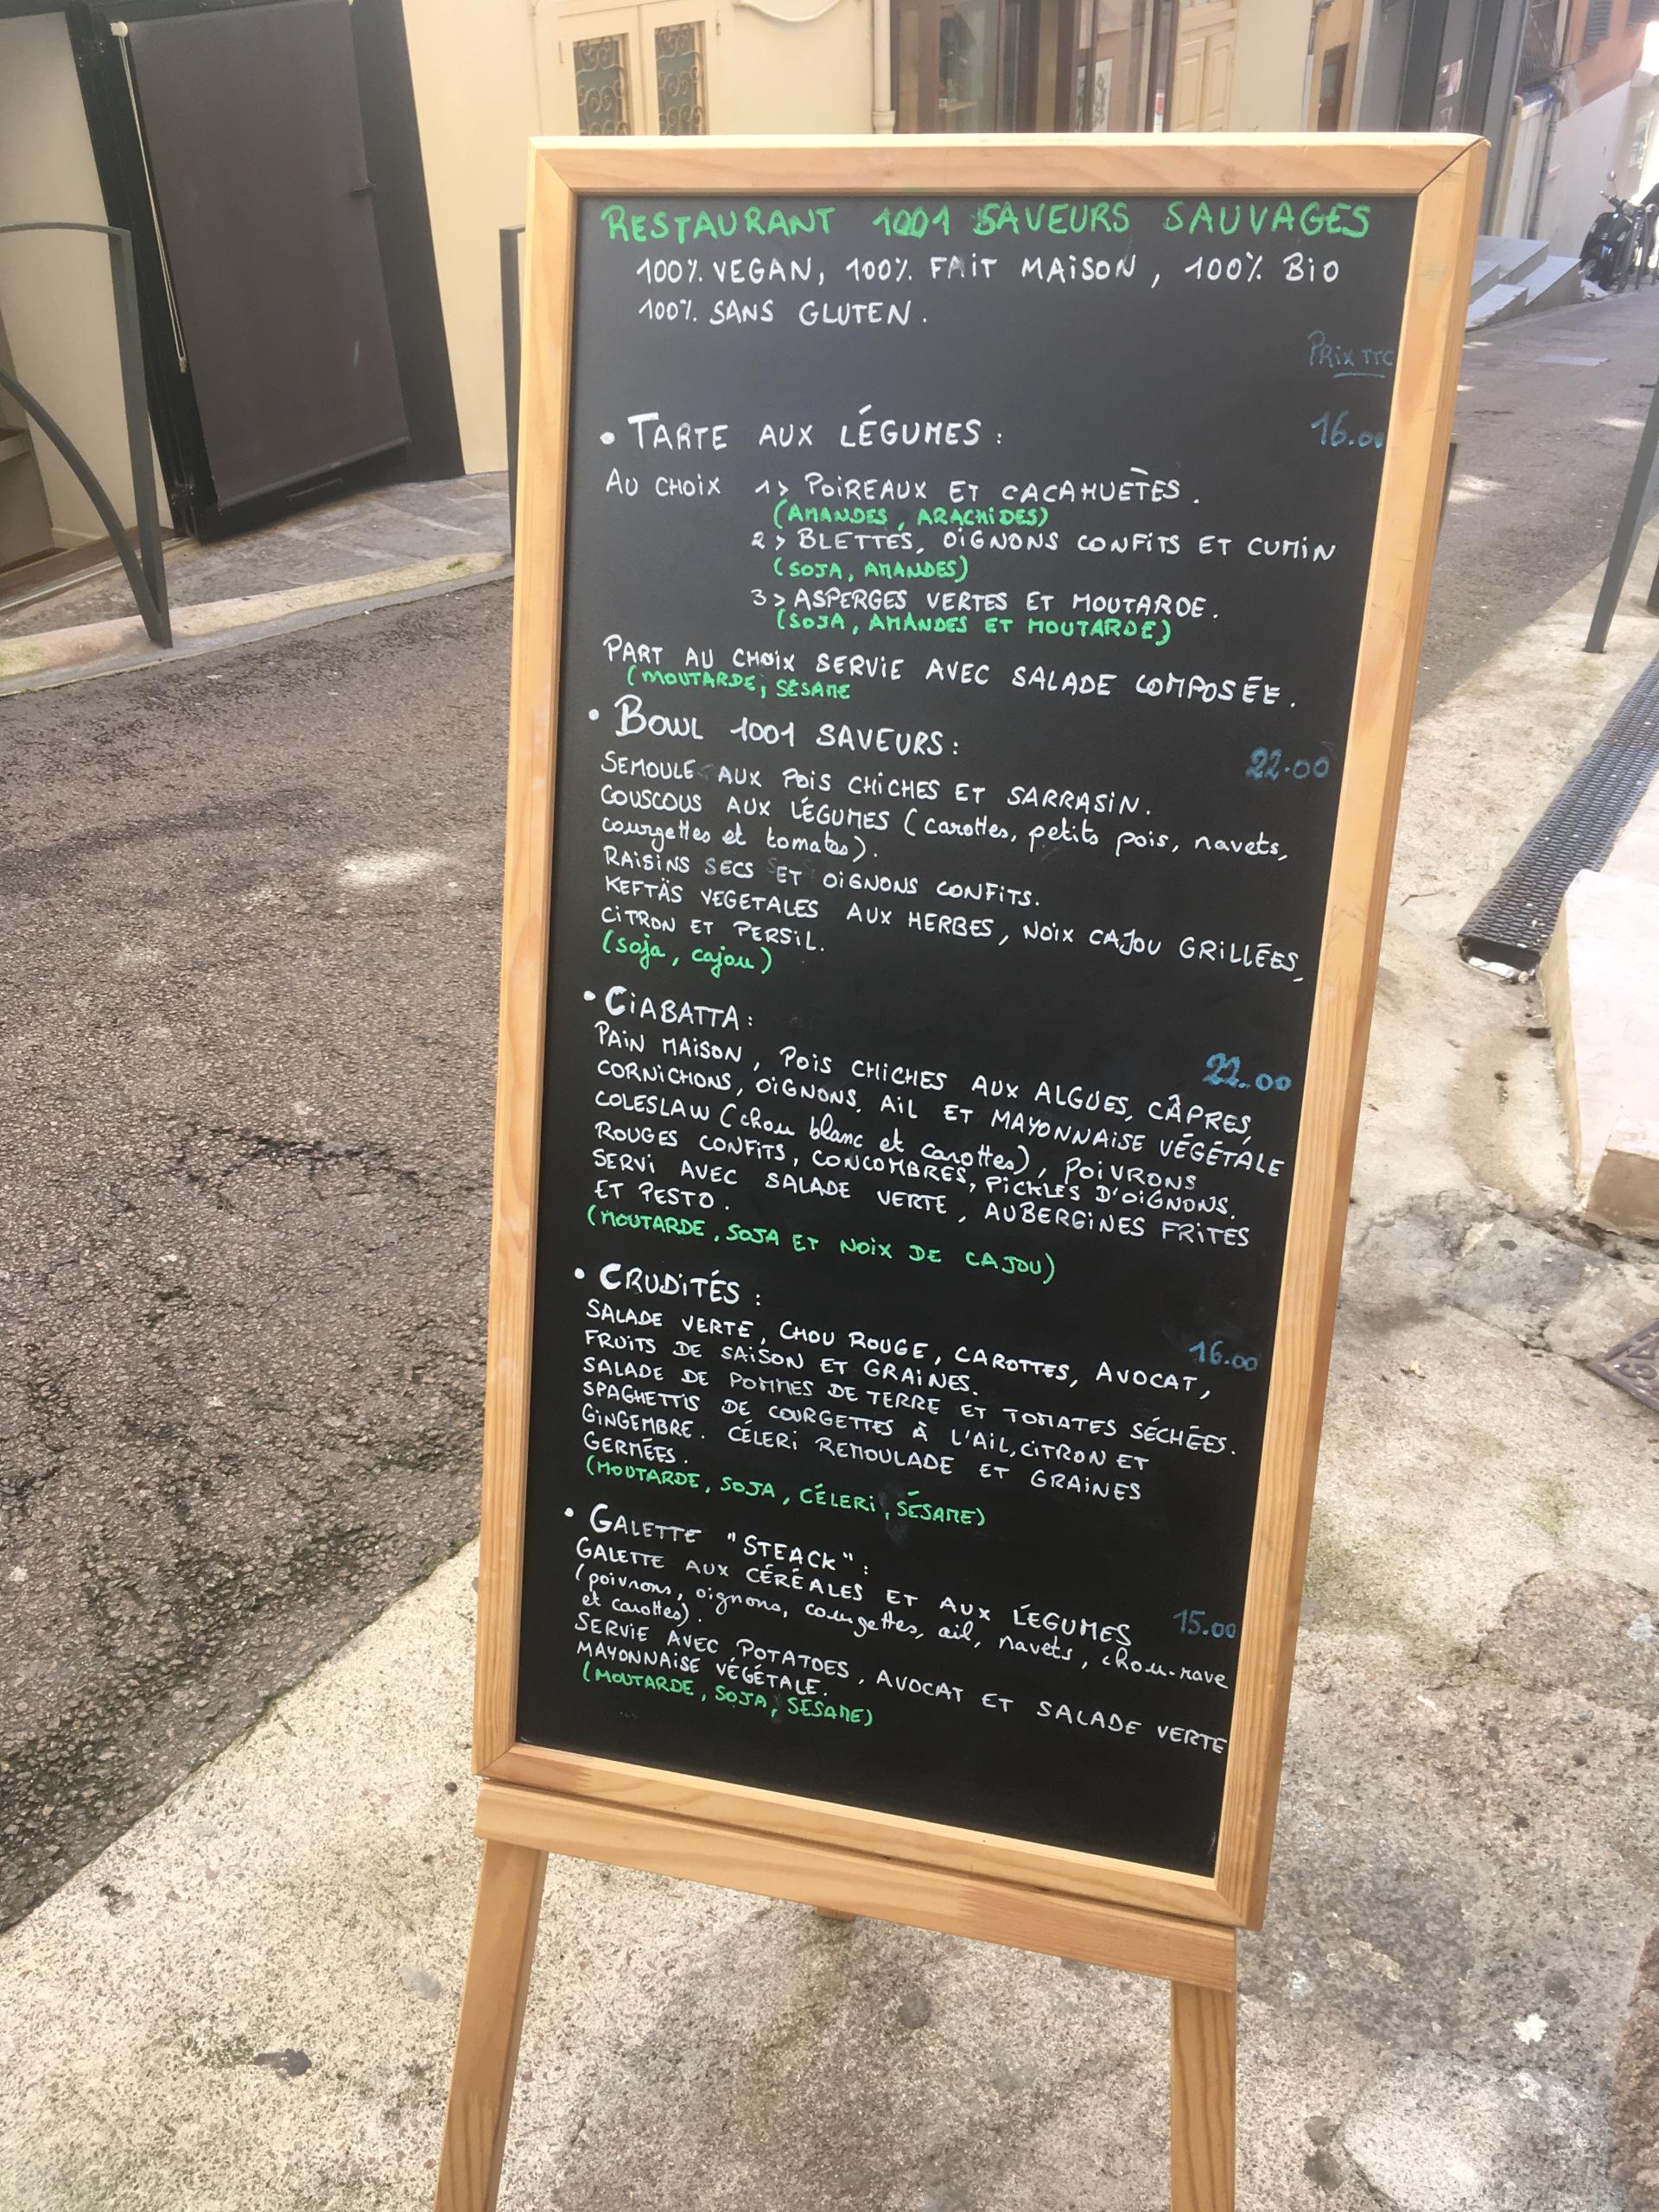 RESTAURANT 1001 SAVEURS SAUVAGES
100% VEGAN, 100% FAIT MAISON, 100% BIO
100% SANS GLUTEN.
PRIX TTC
• TARTE AUX LÉGUMES : 16.00
AU CHOIX 1> POIREAUX ET CACAHUETES.
(AMANDES, ARACHIDES)
2> BLETTES, OIGNONS CONFITS ET CUMIN
(SOJA, AMANDES)
3> ASPERGES VERTES ET MOUTARDE.
(SOJA, AMANDES ET MOUTARDE)
PART AU CHOIX SERVIE AVEC SALADE COMPOSÉE.
(MOUTARDE, SÉSAME
• BOWL 1001 SAVEURS : 22.00
SEMOULE AUX POIS CHICHES ET SARRASIN.
COUSCOUS AUX LÉGUMES (carottes, petits pois, navets,
courgettes et tomates).
RAISINS SECS ET OIGNONS CONFITS.
KEFTÄS VEGETALES AUX HERBES, NOIX CAJOU GRILLÉES,
CITRON ET PERSIL.
(soja, cajou)
• CIABATTA : 22.00
PAIN MAISON, POIS CHICHES AUX ALGUES, CÂPRES,
CORNICHONS, OIGNONS, AIL ET MAYONNAISE VÉGÉTALE
COLESLAW (chou blanc et carottes), POIVRONS
ROUGES CONFITS, CONCOMBRES, PICKLES D'OIGNONS.
SERVI AVEC SALADE VERTE, AUBERGINES FRITES
ET PESTO.
(MOUTARDE, SOJA ET NOIX DE CAJOU)
• CRUDITÉS : 16.00
SALADE VERTE, CHOU ROUGE, CAROTTES, AVOCAT,
FRUITS DE SAISON ET GRAINES.
SALADE DE POMMES DE TERRE ET TOMATES SÉCHÉES.
SPAGHETTIS DE COURGETTES À L'AIL, CITRON ET
GINGEMBRE. CÉLERI REMOULADE ET GRAINES
GERMÉES.
(MOUTARDE, SOJA, CÉLERI, SÉSAME)
• GALETTE "STEACK" :
GALETTE AUX CÉRÉALES ET AUX LÉGUMES 15.00
(poivrons, oignons, courgettes, ail, navets, chou-rave
et carottes).
SERVIE AVEC POTATOES, AVOCAT ET SALADE VERTE
MAYONNAISE VÉGÉTALE.
(MOUTARDE, SOJA, SESAME)